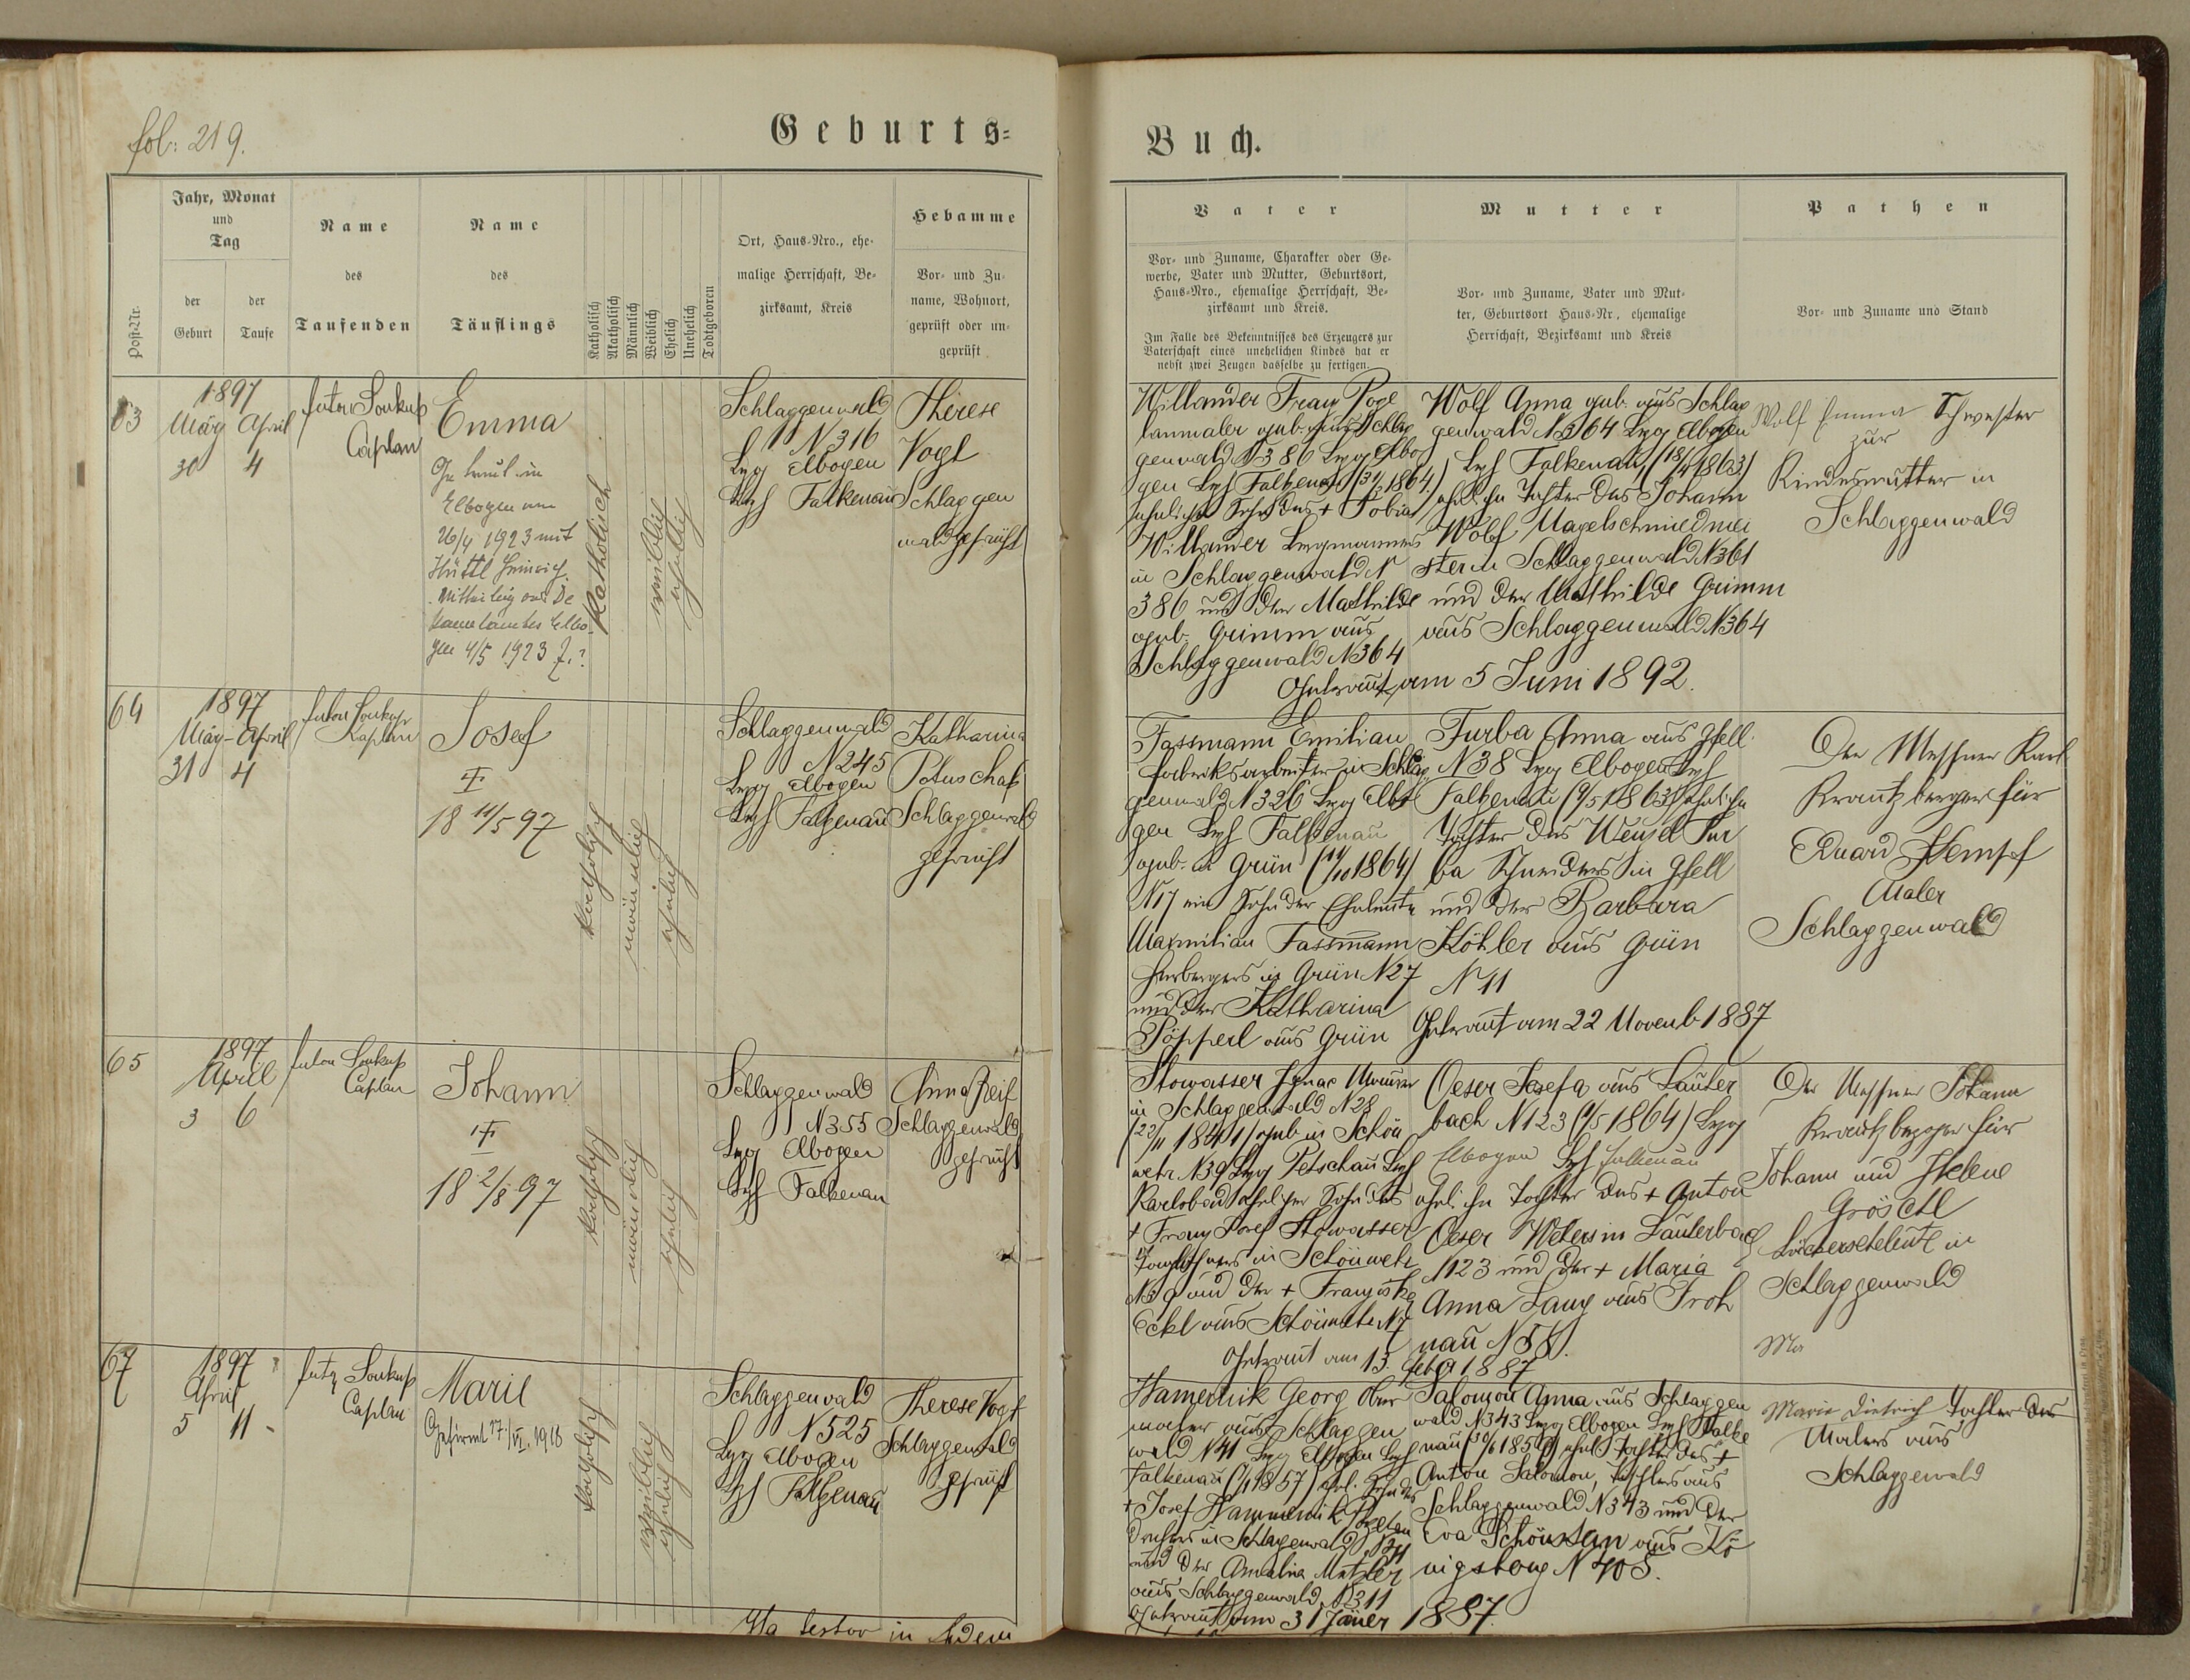 fol: 219.
Geburts-
Buch.
Post-Nr.
Jahr, Monat
und
Tag
der
Geburt
der
Taufe
Name
des
Taufenden
Name
des
Täuflings
Katholisch
Akatholisch
Männlich
Weiblich
Ehelich
Unehelich
Todtgeboren
Ort, Haus-Nro., ehe-
malige Herrschaft, Be-
zirksamt, Kreis
Hebamme
Vor- und Zu-
name, Wohnort,
geprüft oder un-
geprüft
Vater
Vor- und Zuname, Charakter oder Ge-
werbe, Vater und Mutter, Geburtsort,
Haus-Nro., ehemalige Herrschaft, Be-
zirksamt und Kreis.
Im Falle des Bekenntnisses des Erzeugers zur
Vaterschaft eines unehelichen Kindes hat er
nebst zwei Zeugen dasselbe zu fertigen.
Mutter
Vor- und Zuname, Vater und Mut-
ter, Geburtsort Haus-Nr, ehemalige
Herrschaft, Bezirksamt und Kreis
Pathen
Vor- und Zuname und Stand
63
1897
März April
30 4
Anton Soukup
Caplan
Emma
Getraut in
Elbogen am
26/4 1923 mit
Hüttl Heinrich.
Elbo-
gen 4/5 1923
Katholisch
weiblich
ehelich
Schlaggenwald
N 316
Bzg Elbogen
Bzh Falkenau
Therese
Vogl
Schlaggen
wald geprüft
Willander Franz
maler geb. aus Schlag
genwald N 386 Bzg Elbo
gen Bzh Falkenau 1864)
ehelicher Sohn des + Tobias
Willander Bergmannes
in Schlaggenwald N
386 und der Mathilde
geb. Grimm aus
Schlaggenwald N 364
Wolf Anna geb. aus Schlag
genwald N 364 Bzg Elbogen
Bzh Falkenau 1863)
eheliche Tochter des Johann
Wolf, Nagelschmiedmei
ster in Schlaggenwald N 361
und der Mathilde Grimm
aus Schlaggenwald N 364
Getraut am 5 Juni 1892.
Wolf Emma Schwester
zur
Kindesmutter in
Schlaggenwald
64
1897
März-April
31 4
Anton Soukup
Kaplan
Josef
18 11/5 97
katholisch
männlich
ehelich
Schlaggenwald
N 245
Bzg Elbogen
Bzh Falkenau
Katharina
Potuschak
Schlaggenwald
geprüft
Fassmann Emilian
Fabriksarbeiter in Schlag
genwald N 326 Bzg Elbo
gen Bzh Falkenau
geb. in Grün 1864)
N 17 ein Sohn der Eheleute
Maxmilian Fassmann
in Grün N 27
und der Katharina
Pöpperl aus Grün
Furba Anna aus Gfell
N 38 Bzg Elbogen Bzh
Falkenau 1863) eheliche
Tochter des Wenzel Fur
ba Schneiders in Gfell
und der Barbara
Köhler aus Grün
N 11
Getraut am 22 Novemb 1887
Der Messner Karl
Krautzberger für
Eduard Hempf
Maler
Schlaggenwald
65
1897
April
3 6
Anton Soukup
Caplan
Johann
18 2/8 97
katholisch
männlich
ehelich
Schlaggenwald
N 355
Bzg Elbogen
Bzh Falkenau
Anna Reif
Schlaggenwald
geprüft
Stowasser Ignac Maurer
in Schlaggenwald N 28
geb in Schön
wehr N 39 Bzg Petschau Bzh
Karlsbad ehelicher Sohn des
+ Franz Josef Stowasser
Taglöhners in Schönwehr
N 39 und der + Franziska
Eckl aus Schönwehr N 7
Oeser Josefa aus Lauter
bach N 123 1864) Bzg
Elbogen Bzh Falkenau
eheliche Tochter des + Anton
Oeser Webers in Lauterbach
N 123 und der + Maria
Anna Lang aus Froh
nau N 58.
Getraut am 13. Feber 1887
Der Messner Johann
Krautzberger für
Johann und Helene
Gröschl
in
Schlaggenwald
Ma
67
1897
April
5 11
Anton Soukup
Caplan
Marie
Gefirmt 17/VI. 1918
katholisch
weiblich
ehelich
Schlaggenwald
N 525
Bzg Elbogen
Bzh Falkenau
Therese Vogl
Schlaggenwald
geprüft
Hamernik Georg Ober
maler aus Schlaggen
wald N 41 Bzg Elbogen Bzh
Falkenau 1857) ehel. Sohn des
+ Josef Hammernik
drehers in Schlaggenwald N 41
und der Amalia Metzler
aus Schlaggenwald N 311
Getraut am 31 Jäner 1887.
Salomon Anna aus Schlaggen
wald N 343 Bzg Elbogen Bzh Falke
nau ehel Tochter des +
Anton Salomon, Tischlers aus
Schlaggenwald N 343 und der
Eva aus Kö
nigsberg N 408.
Marie Dietrich Tochter des
Malers aus
Schlaggewald